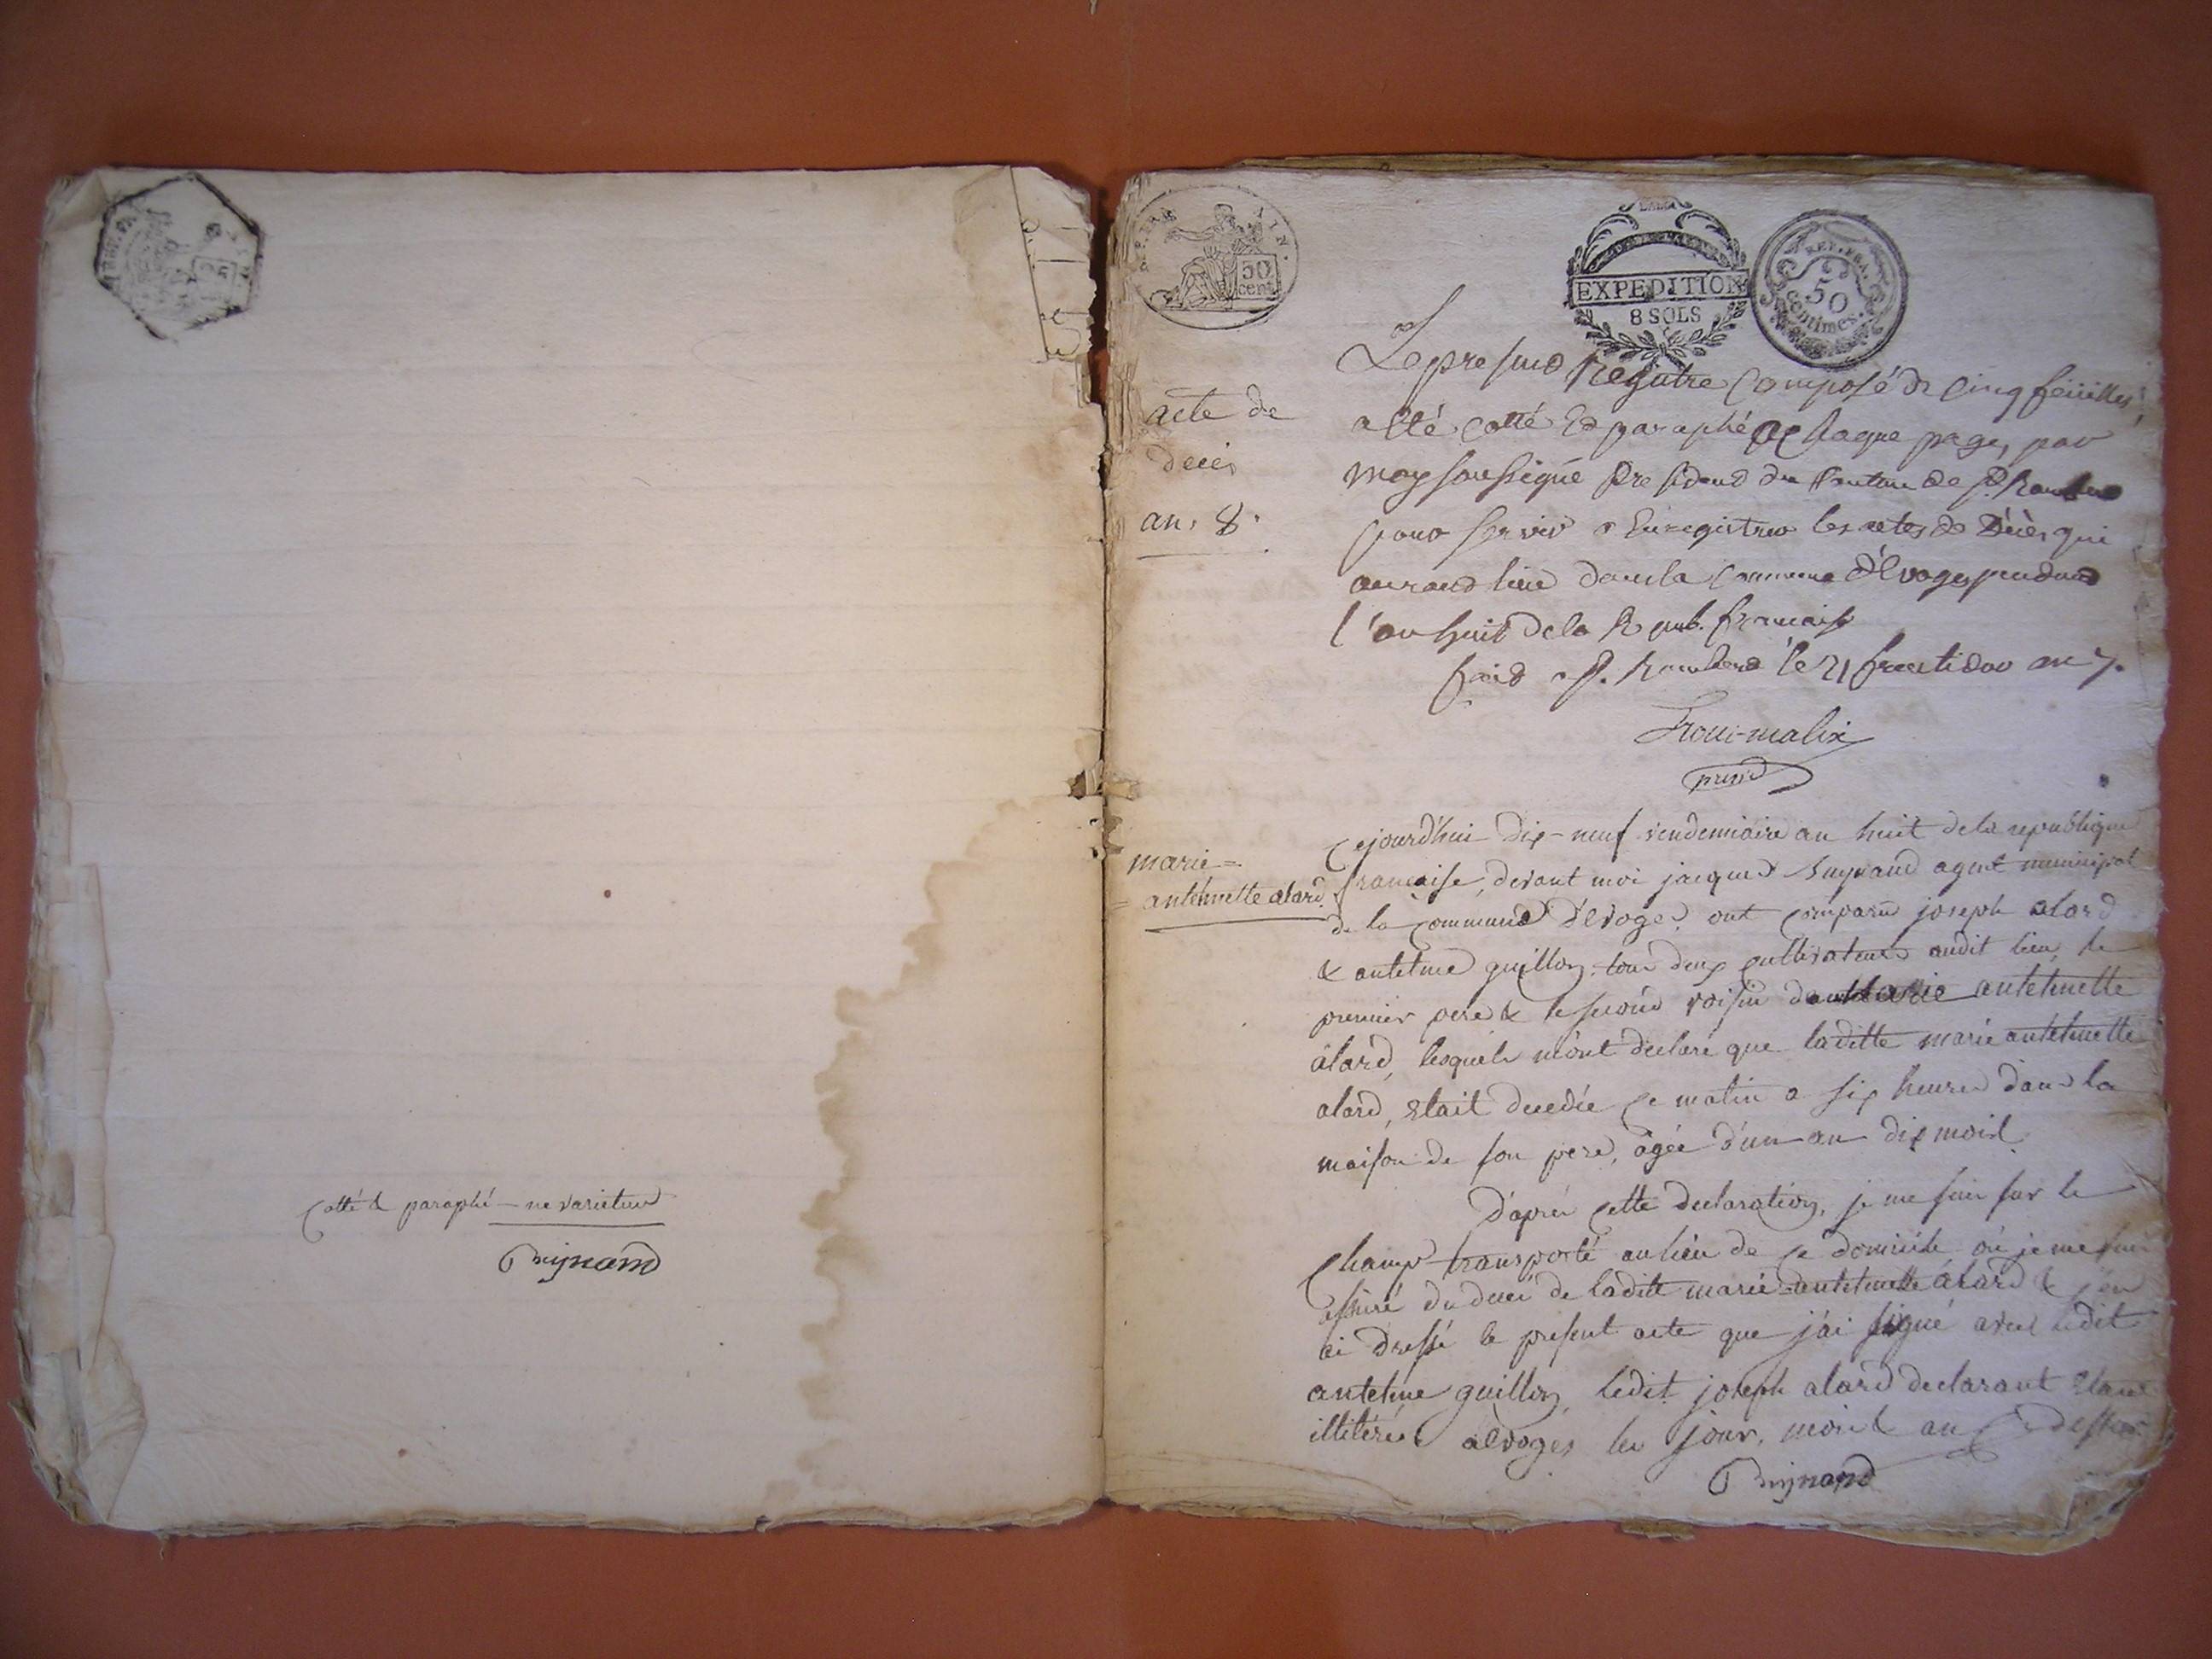 cotté & paraphé ne varietur
AIN.
50
cent.
EXPEDITION
8 SOLS
REP. FRA.
50
centimes.
acte de
decès
an. 8.
Le present Registre composé de cinq feüilles
a été cotté et paraphé a chaque page, par
moy soussigné President du Canton de St. Rambert
pour servir a Enregistrer les actes de Décès qui
auront lieu dans la commune d'Evoges pendant
l'an huit de la Repub. francaise
fait a St. Rambert le 21 fructidor an 7.
Trouc-malix
presid
marie=
=antelmette alard.
Cejourd'hui dix-neuf vendemiaire an huit de la republique
francaise, devant moi jacques agent municipal
de la commune d'Evoges ont comparu joseph alard
& antelme guillon, tous deux cultivateurs audit lieu, le
premier pere & le second voisin de marie antelmette
alard, lesquels m'ont declaré que laditte marie antelmette
alard, etait decedée ce matin a six heures dans la
maison de son pere, agée d'un an dix mois.
D'aprés cette declaration, je me suis sur le
champ transporté au lieu de ce domicile où je me suis
assuré du decé de laditte marie-antelmette alard & j'en
ai dressé le present acte que j'ai signé avec ledit
antelme guillon, ledit joseph alard declarant etant
illitéré. a Evoges les jour, mois & an